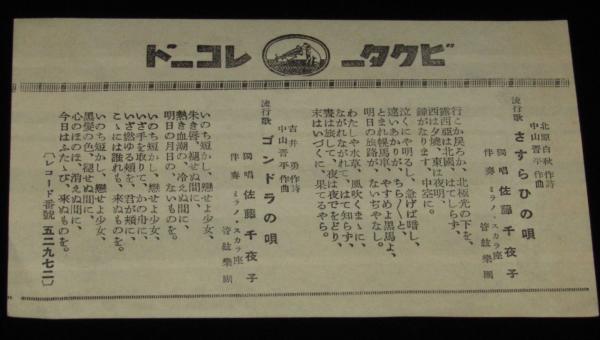 ビクターレコード
北原白秋作詩
中山晋平作曲
流行歌 さすらひの唄
獨唱 佐藤千夜子
伴奏 ミラノ・スカラ座 管絃樂團
行こか戻ろか、北極光の下を、
露西亞は北國、はてしらず、
西は夕燒、東は夜明、
鐘がなります、中空に。
泣くにや明るし、急げば暗し、
遠いあかりが、ちら〳〵と、
とまれ幌馬車、やすめよ黒馬よ、
明日の旅路が、ないぢやなし。
わたしや水草、風吹くまゝに、
ながれながれて、はて知らず、
晝は旅して、夜は夜でをどり、
末はいづくに、果てるやら。
吉井勇作詩
中山晋平作曲
流行歌 ゴンドラの唄
獨唱 佐藤千夜子
伴奏 ミラノ・スカラ座 管絃樂團
いのち短かし、戀せよ少女、
朱き唇、褪せぬ間に、
熱き血潮の、冷えぬ間に、
明日の月日の、ないものを。
いのち短かし、戀せよ少女、
いざ手を取りて、かの舟に、
いざ燃ゆる頬を、君が頬に、
こゝには誰れも、來ぬものを。
いのち短かし、戀せよ少女、
黒髮の色、褪せぬ間に、
心のほのほ、消えぬ間に、
今日はふたゝび、來ぬものを。
〔レコード番號 五二九七二〕